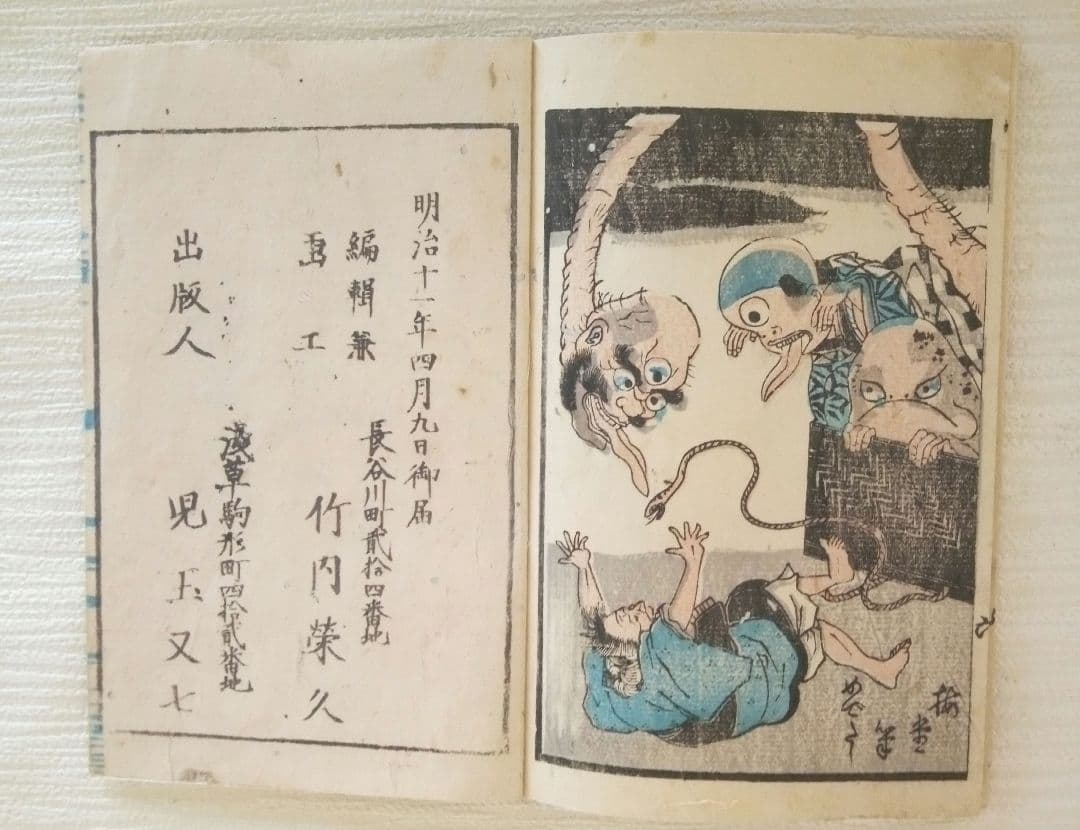 明治十一年四月九日御届
編輯兼
画工
長谷川町貳拾四番地
竹内榮久
出版人
淺草駒形町四拾貳番地
児玉又七
梅堂
筆
めでたし